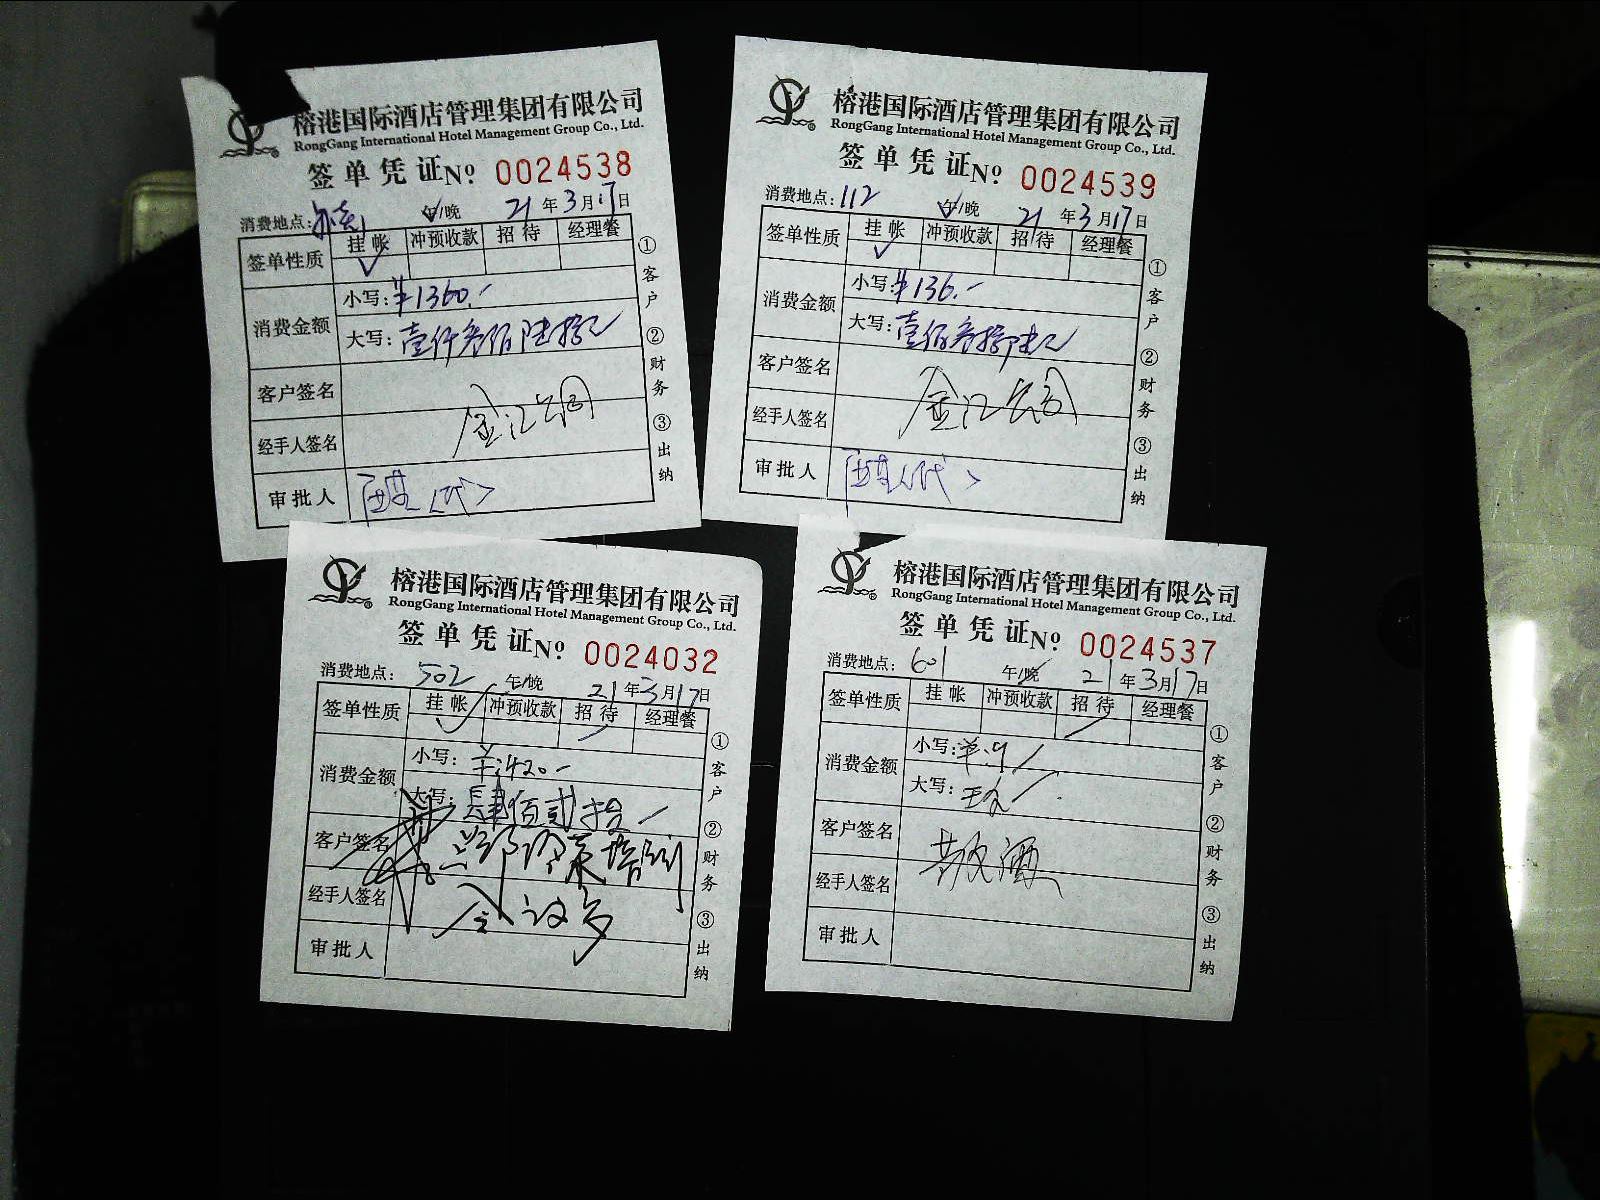 榕港国际酒店管理集团有限公司
RongGang International Hotel Management Group Co., Ltd.
签单凭证 Nº 0024538
消费地点: 午/晚 21年3月17日
签单性质 挂帐 冲预收款 招待 经理餐
消费金额
小写: ¥1360.-
大写: 壹仟叁佰陆拾元
客户签名
金汇公司
经手人签名
审批人
①客户 ②财务 ③出纳
榕港国际酒店管理集团有限公司
RongGang International Hotel Management Group Co., Ltd.
签单凭证 Nº 0024539
消费地点: 112 午/晚 21年3月17日
签单性质 挂帐 冲预收款 招待 经理餐
消费金额
小写: ¥136.-
大写: 壹佰叁拾陆元
客户签名
金汇公司
经手人签名
审批人
①客户 ②财务 ③出纳
榕港国际酒店管理集团有限公司
RongGang International Hotel Management Group Co., Ltd.
签单凭证 Nº 0024032
消费地点: 502 午/晚 21年3月17日
签单性质 挂帐 冲预收款 招待 经理餐
消费金额
小写: ¥:420.-
大写: 肆佰贰拾
客户签名
培训
经手人签名
审批人
①客户 ②财务 ③出纳
榕港国际酒店管理集团有限公司
RongGang International Hotel Management Group Co., Ltd.
签单凭证 Nº 0024537
消费地点: 601 午/晚 21年3月17日
签单性质 挂帐 冲预收款 招待 经理餐
消费金额
小写:
大写:
客户签名
经手人签名
审批人
①客户 ②财务 ③出纳